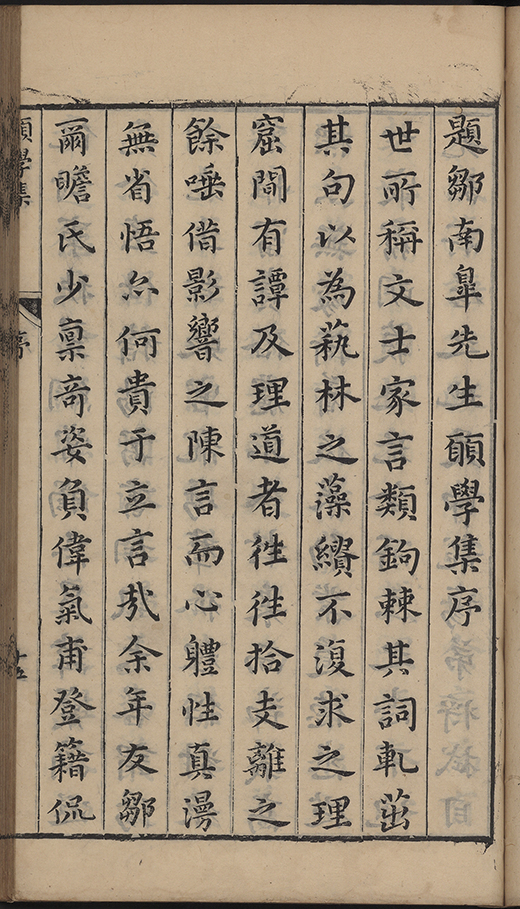 題鄒南臯先生願學集序
世所稱文士家言類鉤棘其詞軋茁
其句以為蓺林之藻繢不復求之理
窟間有譚及理道者徃徃拾支離之
餘唾借影響之陳言而心軆性真漫
無省悟亦何貴于立言㢤余年友鄒
爾瞻氏少稟竒姿負偉氣甫登籍侃
願學集
序
十五